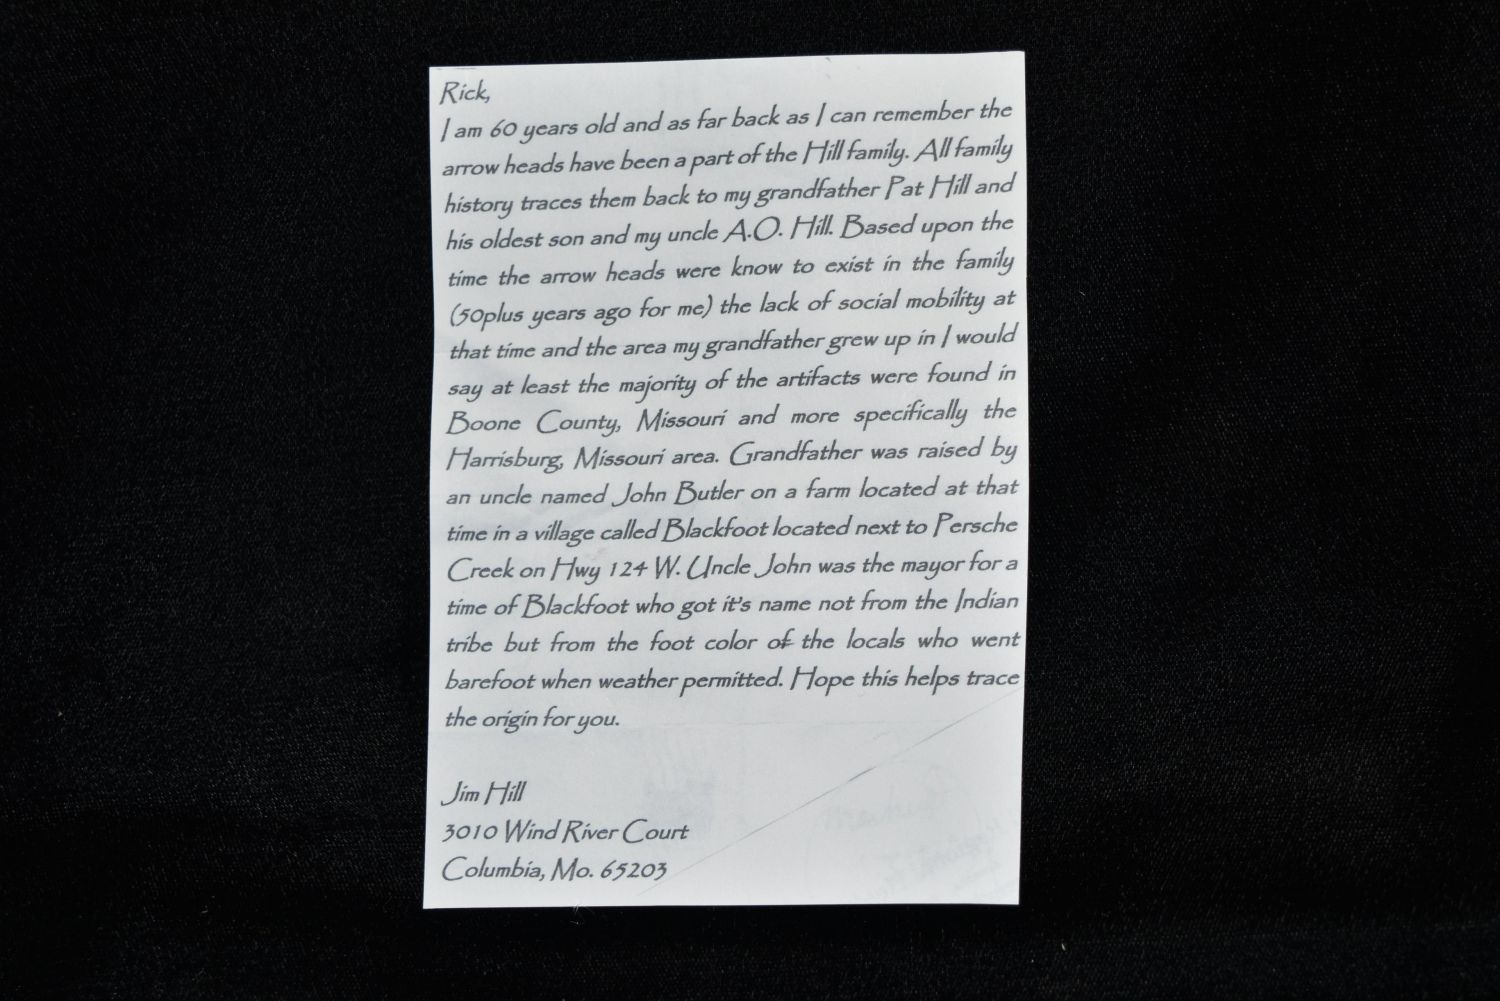 Rick,
I am 60 years old and as far back as I can remember the
arrow heads have been a part of the Hill family. All family
history traces them back to my grandfather Pat Hill and
his oldest son and my uncle A.O. Hill. Based upon the
time the arrow heads were know to exist in the family
(50plus years ago for me) the lack of social mobility at
that time and the area my grandfather grew up in I would
say at least the majority of the artifacts were found in
Boone County, Missouri and more specifically the
Harrisburg, Missouri area. Grandfather was raised by
an uncle named John Butler on a farm located at that
time in a village called Blackfoot located next to Persche
Creek on Hwy 124 W. Uncle John was the mayor for a
time of Blackfoot who got it's name not from the Indian
tribe but from the foot color of the locals who went
barefoot when weather permitted. Hope this helps trace
the origin for you.
Jim Hill
3010 Wind River Court
Columbia, Mo. 65203